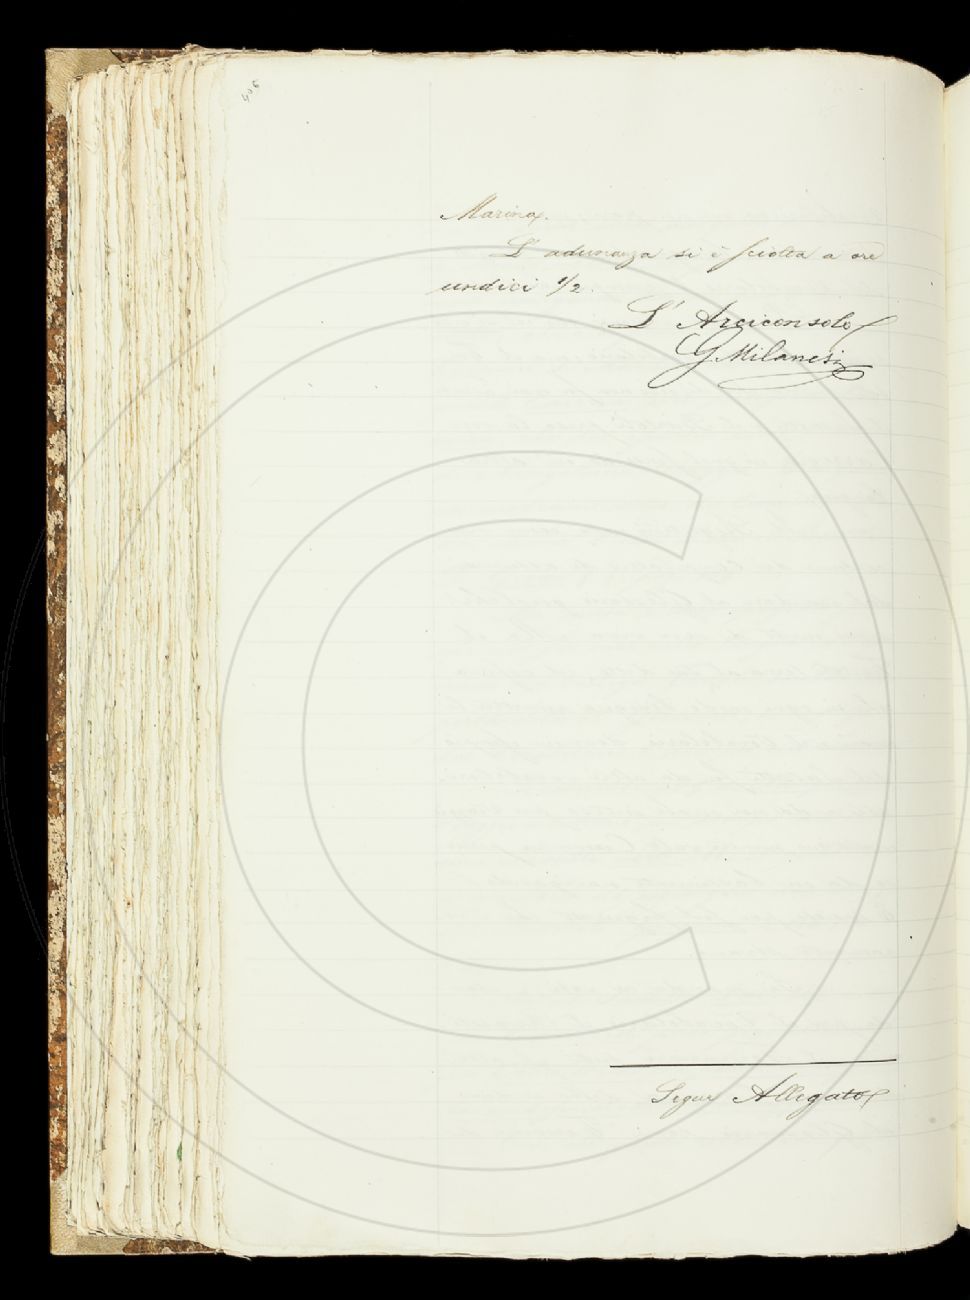 406
Marina.
L'adunanza si è sciolta a ore
undici 1/2.
L'Arciconsolo
G Milanesi
Segue Allegato